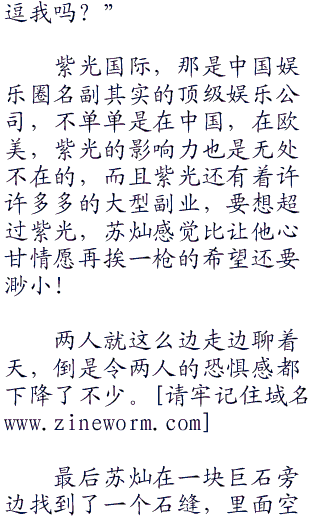 逗我吗？”
紫光国际，那是中国娱
乐圈名副其实的顶级娱乐公
司，不单单是在中国，在欧
美，紫光的影响力也是无处
不在的，而且紫光还有着许
许多多的大型副业，要想超
过紫光，苏灿感觉比让他心
甘情愿再挨一枪的希望还要
渺小！
两人就这么边走边聊着
天，倒是令两人的恐惧感都
下降了不少。[请牢记住域名
www.zineworm.com]
最后苏灿在一块巨石旁
边找到了一个石缝，里面空